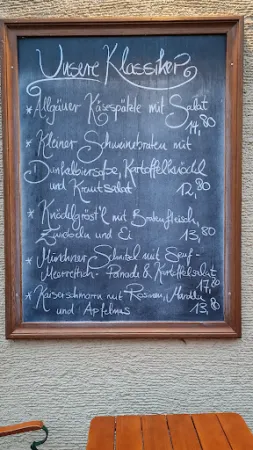 Unsere Klassiker
* Allgäuer Käsespätzle mit Salat
14,80
* Kleiner Schweinebraten mit
Dunkelbiersoße, Kartoffelknödel
und Krautsalat 12,80
* Knödelgröst'l mit Bratenfleisch,
Zwiebeln und Ei 13,80
* Münchner Schnitzel mit Senf-
Meerrettich-Panade & Kartoffelsalat
17,80
* Kaiserschmarrn mit Rosinen, Mandeln
und Apfelmus 13,80